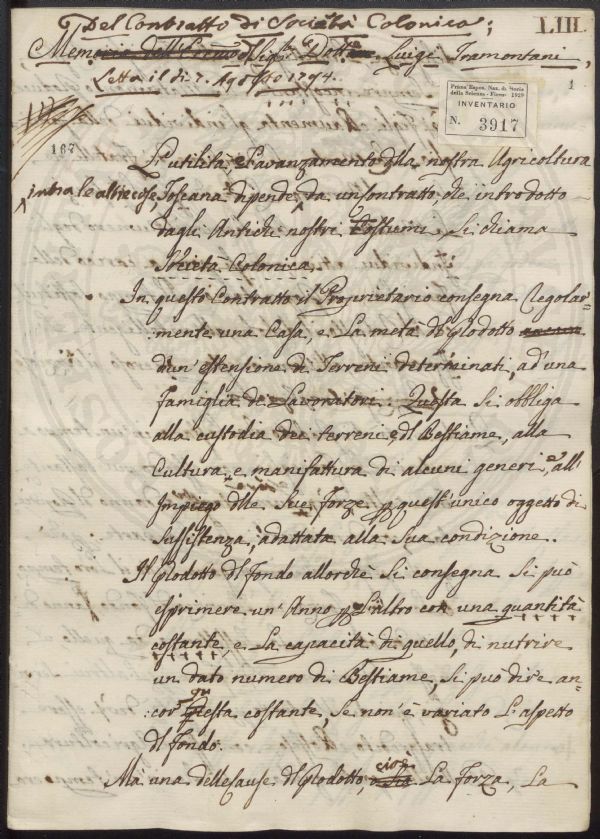 Del Contratto di Società Colonica;
LIII.
Memoria dell'Ecc.mo Sig.r Dott.re Luigi Tramontani,
Letta il dì 7. Agosto 1794.
1
Prima Espos. Naz. di Storia
della Scienza - Firenze 1929
INVENTARIO
N. 3917
167
L'utilità, e l'avanzamento dlla nostra Agricoltura
intra le altre cose, Toscana dipende, da un contratto che introdotto
dagli Antichi nostri Costumi, si chiama
Società Colonica.
In questo Contratto il Proprietario consegna Regolar=
mente una Casa, e La metà dl Prodotto
d'un'estensione di Terreni determinati, ad'una
Famiglia de Lavoratori; Questa si obbliga
alla custodia dei terreni, e dl Bestiame, alla
Cultura, e manifattura di alcuni generi, e all'
Impiego dlle Sue forze p quest'unico oggetto di
Sussistenza, adattata alla Sua condizione.
Il Prodotto dl fondo allorchè si consegna si può
esprimere un'Anno p L'altro con una quantità
costante, e La capacità di quello, di nutrire
un dato numero di Bestiame, si può dire an=
cor questa costante, se non'è variato L'aspetto
dl fondo.
Ma una delle Cause dl Prodotto, cioè La forza, La